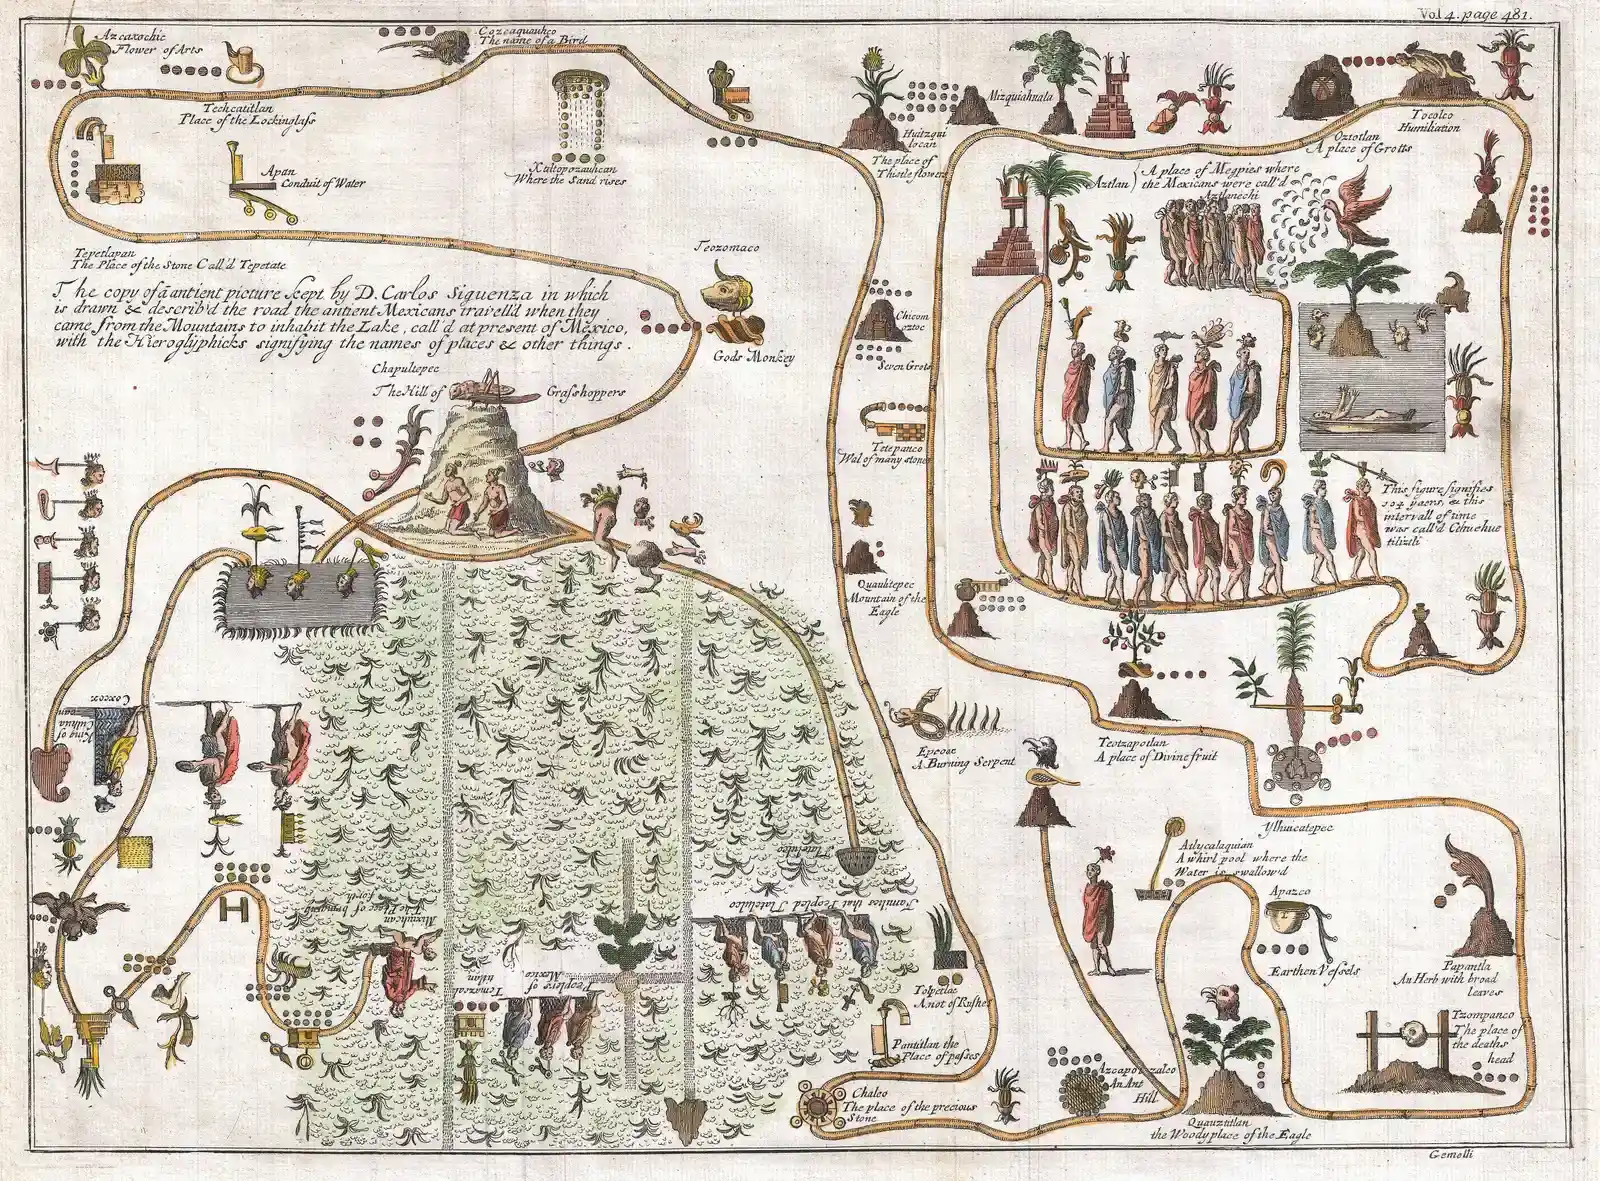 Vol 4. page 481.
Azcaxochic
Flower of Arts
Cozcaquauhco
The name of a Bird
Techcatitlan
Place of the Lockinglass
Apan
Conduit of Water
Xaltopozauhcan
Where the Sand rises
Tepetlapan
The Place of the Stone Call'd Tepetate
The copy of ā antient picture kept by D. Carlos Siguenza in which
is drawn & describ'd the road the antient Mexicans travell'd when they
came from the Mountains to inhabit the Lake, call'd at present of Mexico,
with the Hieroglyphicks signifying the names of places & other things.
Teozomaco
Gods Monkey
Chapultepec
The Hill of Grasshoppers
Huitzqui
locan
The place of
Thistle flowers
Mizquiahuala
Aztlan
A place of Megpies where
the Mexicans were call'd
Aztlanechi
Oztotlan
A place of Grotts
Tocolco
Humiliation
Chicom
oztoc
Seven Grots
Tetepanco
Wal of many stones
Quauhtepec
Mountain of the
Eagle
This figure signifies
104 years, & this
intervall of time
was call'd Cehuehue
tiliztli
Teotzapotlan
A place of Divine fruit
Epcoac
A Burning Serpent
Ylhuicatepec
Atlycalaquian
A whirl pool where the
Water is swallow'd
Apazco
Earthen Vessels
Papantla
An Herb with broad
leaves
Tzompanco
The place of
the deaths
head
Azcapotzalco
An Ant
Hill
Quauztitlan
the Woody place of the Eagle
Tolpetlac
A not of Rushes
Pantitlan the
Place of passes
Chalco
The place of the precious
Stone
Coxcox
King of
Culhua
can
Mixiuhcan
The Place of bringing
forth
Temazcal
titlan
Peoplers of
Mexico
Families that Peopled Tlatelulco
Tlatelulco
Gemelli